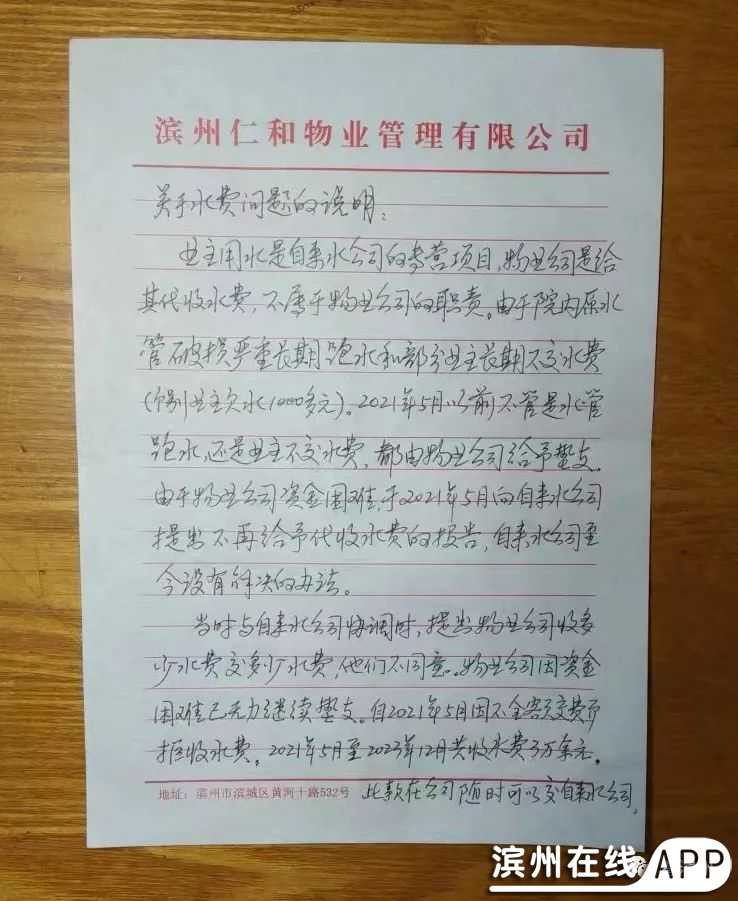 滨州仁和物业管理有限公司
关于水费问题的说明:
业主用水是自来水公司的专营项目,物业公司是给
其代收水费,不属于物业公司的职责。由于院内原水
管破损严重长期跑水和部分业主长期不交水费
(个别业主欠水1000多元)。2021年5月以前不管是水管
跑水,还是业主不交水费,都由物业公司给予垫支。
由于物业公司资金困难,于2021年5月向自来水公司
提出不再给予代收水费的报告,自来水公司至
今没有解决的办法。
当时与自来水公司协调时,提出物业公司收多
少水费交多少水费,他们不同意。物业公司因资金
困难已无力继续垫支。自2021年5月因不全额交费而
拒收水费。2021年5月至2023年12月共收水费3万余元。
地址:滨州市滨城区黄河十路532号 此款在公司随时可以交自来水公司。
滨州在线APP